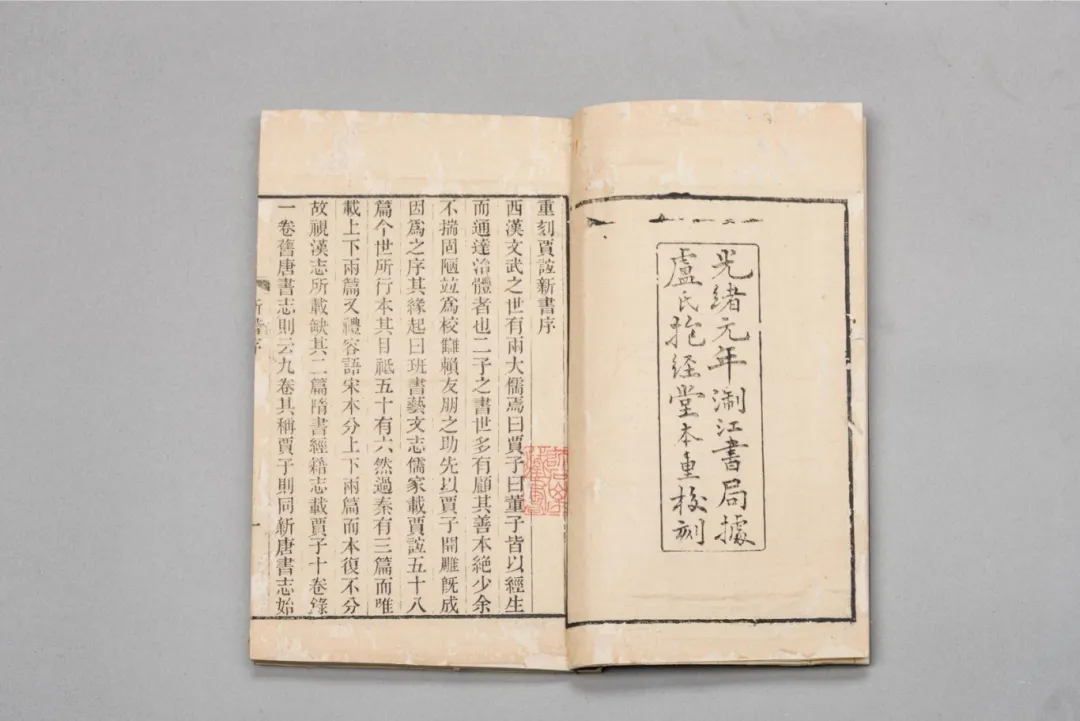 光緒元年淛江書局據
盧氏抱经堂本重校刻
重刻賈誼新書序
西漢文武之世有兩大儒焉曰賈子曰董子皆以經生
而通達治體者也二子之書世多有顧其善本絶少余
不揣固陋竝爲校讎賴友朋之助先以賈子開雕旣成
因爲之序其緣起曰班書藝文志儒家載賈誼五十八
篇今世所行本其目祗五十有六然過秦有三篇而唯
載上下兩篇又禮容語宋本分上下兩篇而本復不分
故視漢志所載缺其二篇隋書經籍志載賈子十卷錄
一卷舊唐書志則云九卷其稱賈子則同新唐書志始
一